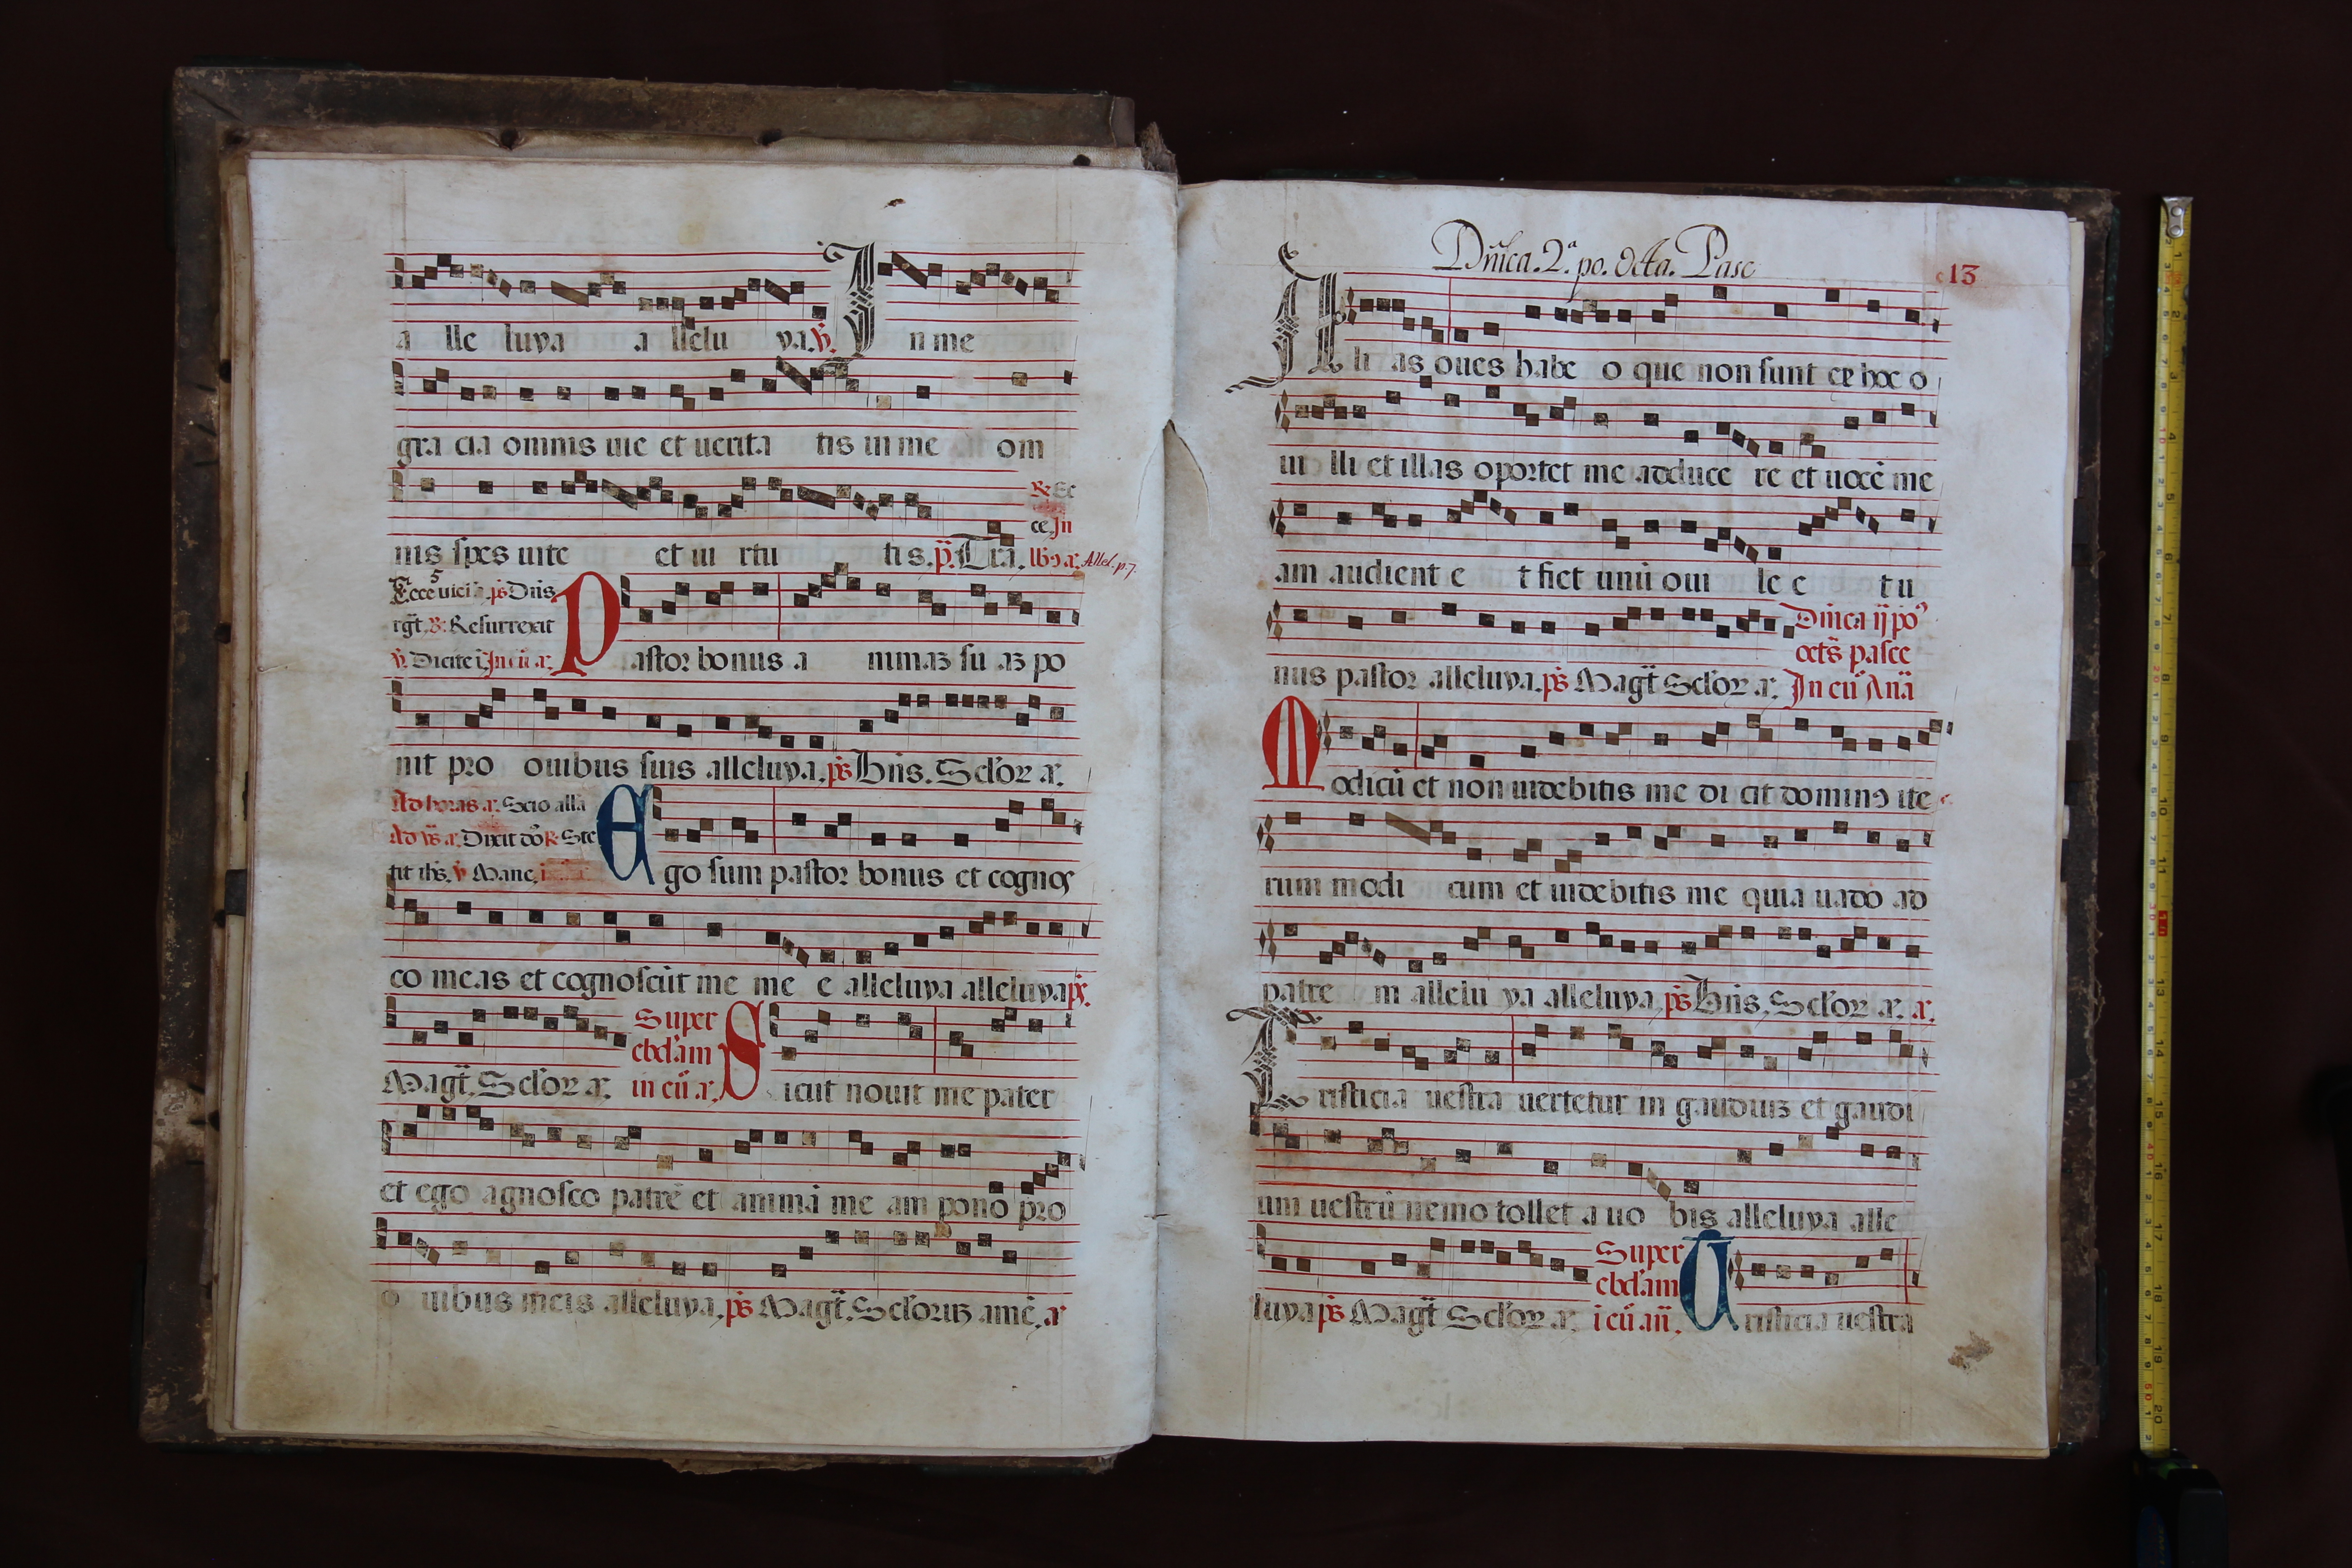 a lle luya a llelu ya. ℣. In me
gra cia omnis uie et uerita tis in me om
℟. Ec
ce. In
nis spes uite et ui rtu tis. p̃. Tra. Allel. p. 7.
5
Ecce uici ps̄ Dn̄s
rg̃t. ℞. Resurrexit
℣. Dicite ī. In eū a.
Pastor bonus a nimaz su az po
nit pro ouibus suis alleluya. ps̄ Bn̄s. Sc̄lor a.
Ad horas a. Scio alla
Ad ps̄ a. Dixit dō ℞ Ste
tit ihs̄. ℣ Mane.
Ego sum pastor bonus et cognos
co meas et cognoscūt me me e alleluya alleluya ps̄.
Super
ebd'am
in eū a.
Magt̄. Sc̄lor a. Sicut nouit me pater
et ego agnosco patrē et animā me am pono pro
o uibus meis alleluya. ps̄ Magt̄. Sc̄loruz amē. a
Dn̄ica. 2ᵃ. po. Octa. Pasc
13
Ali as oues habe o que non sunt ex hoc o
ui lli et illas oportet me adduce re et uocē me
am audient e t fiet unū oui le e t u
Dn̄ica ij po᷒
octs̄ pasce
nus pastor alleluya. ps̄ Magt̄ Sc̄lor a. In eū Anā
Modicū et non uidebitis me di cit dominꝰ ite
rum modi cum et uidebitis me quia uado ad
patre m allelu ya alleluya. ps̄ Bn̄s. Sc̄lor a. a.
Tristicia uestra uertetur in gaudiuz et gaudi
um uestrū nemo tollet a uo bis alleluya alle
Super
ebd'am
luya ps̄ Magt̄ Sc̄lor a. i eū an̄. Tristicia uestra